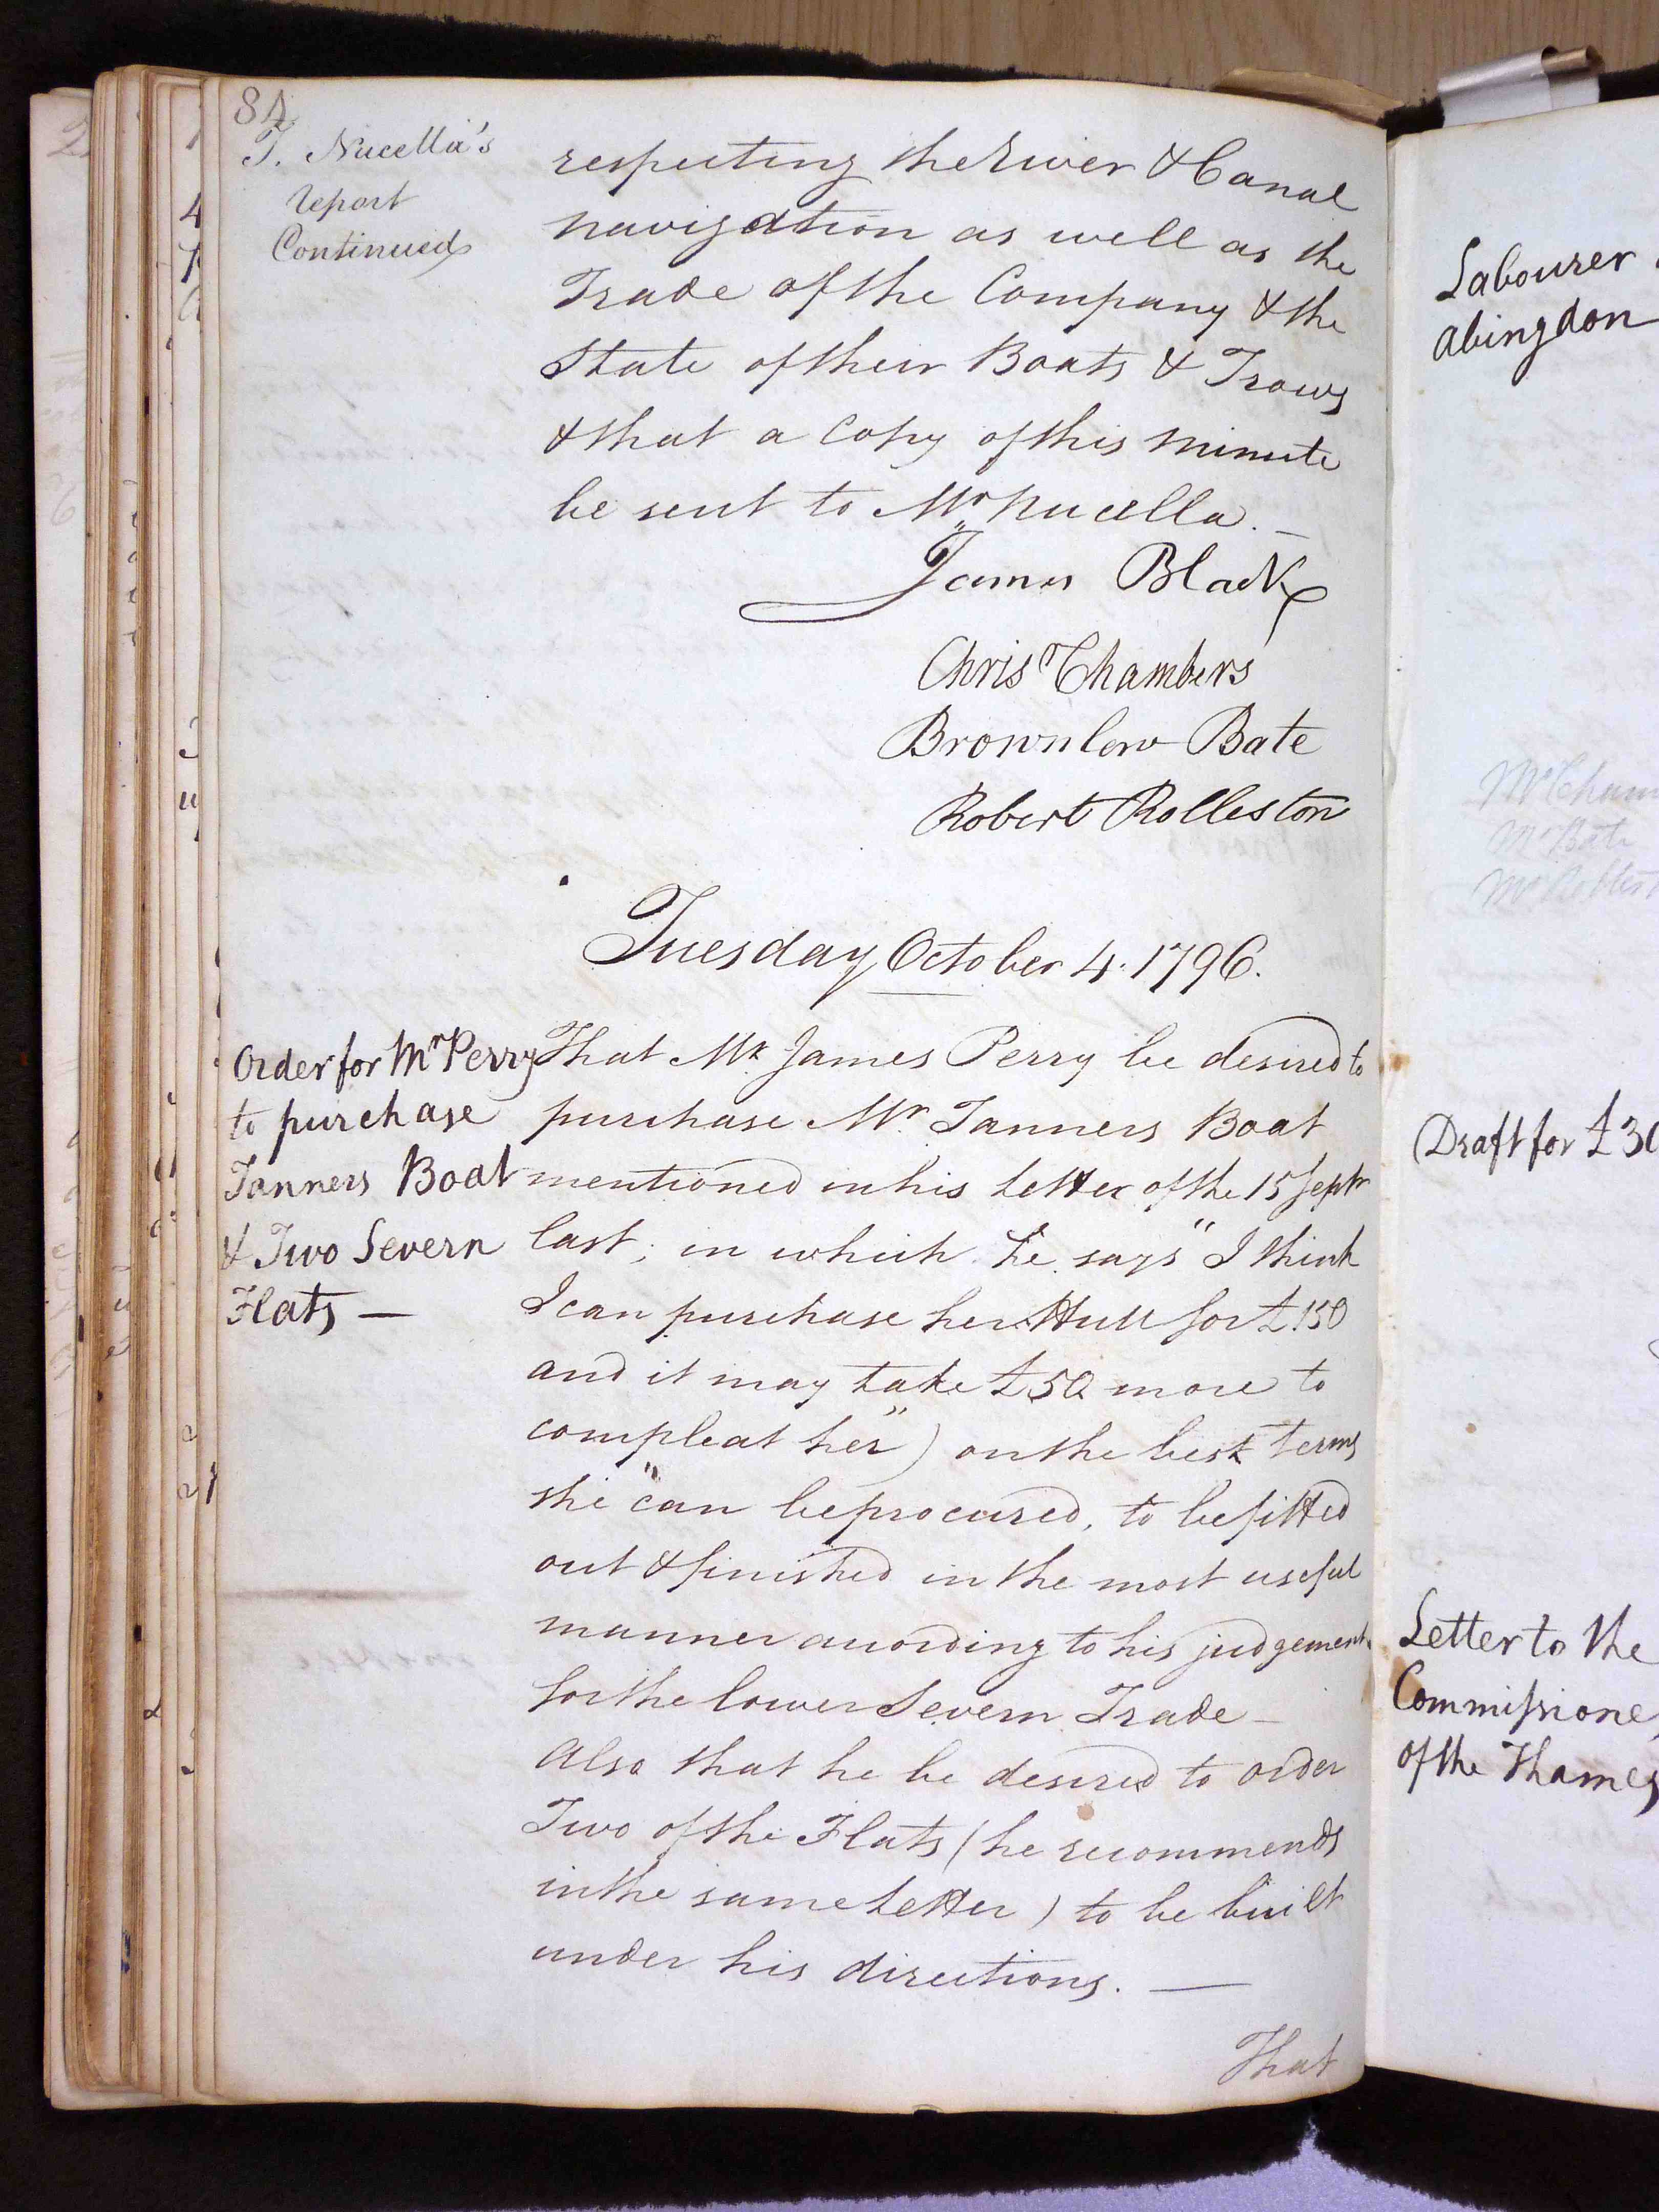 84
T. Nucella's
report
Continued
respecting the River & Canal
navigation as well as the
Trade of the Company & the
State of their Boats & Trows
& that a Copy of this minute
be sent to Mr Nucella. —
James Black
Chrisr Chambers
Brownlow Bate
Robert Rolleston
Tuesday October 4. 1796.
Order for Mr Perry
to purchase
Tanners Boat
& Two Severn
Flats —
That Mr. James Perry be desired to
purchase Mr. Tanners Boat
mentioned in his Letter of the 15 Septr
last; in which he says "I think
I can purchase her Hull for £150
and it may take £50 more to
compleat her") on the best terms
she can be procured, to be fitted
out & finished in the most useful
manner according to his judgement
for the lower Severn Trade —
Also that he be desired to order
Two of the Flats (he recommends
in the same Letter) to be built
under his directions. —
That
Labourer
Abingdon
Mr Cham
Mr Bate
Mr Rollest
Draft for £30
Letter to the
Commissione
of the Thames